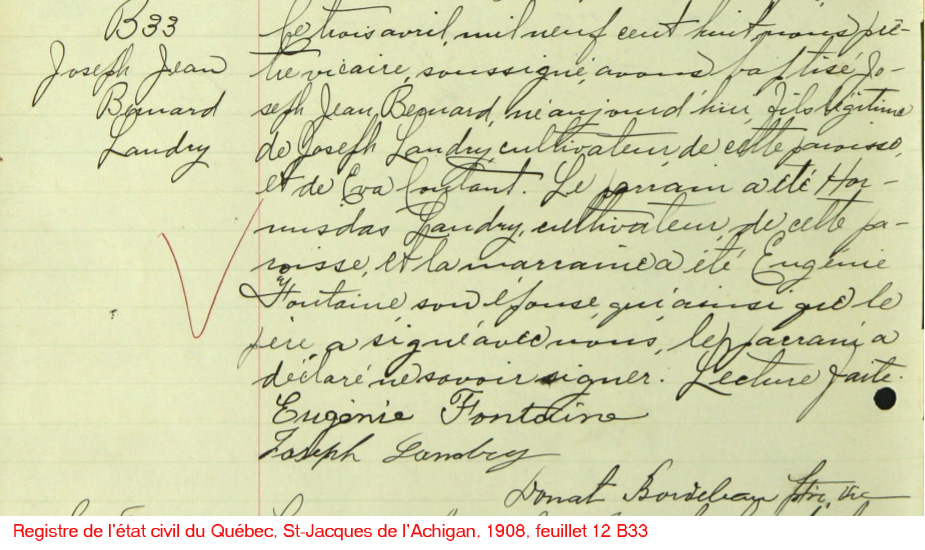 B33
Joseph Jean
Bernard
Landry
Le trois avril, mil neuf cent huit, nous prê-
tre vicaire, soussigné, avons baptisé, Jo-
seph Jean Bernard, né aujourd'hui, fils légitime
de Joseph Landry, cultivateur, de cette paroisse,
et de Eva Contant. Le parrain a été Hor-
misdas Landry, cultivateur, de cette pa-
roisse, et la marraine a été Eugénie
Fontaine, son épouse, qui ainsi que le
père, a signé avec nous, le parrain a
déclaré ne savoir signer. Lecture faite.
Eugénie Fontaine
Joseph Landry
Donat Bordeleau ptre, vic
Registre de l'état civil du Québec, St-Jacques de l'Achigan, 1908, feuillet 12 B33